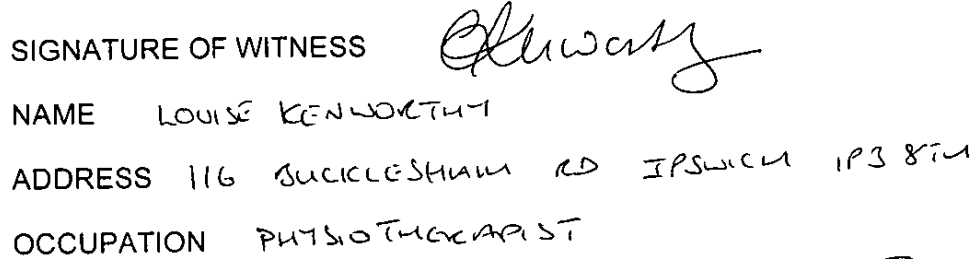 SIGNATURE OF WITNESS
NAME LOUISE KENWORTHY
ADDRESS 116 BUCKLESHAM RD IPSWICH IP3 8TU
OCCUPATION PHYSIOTHERAPIST